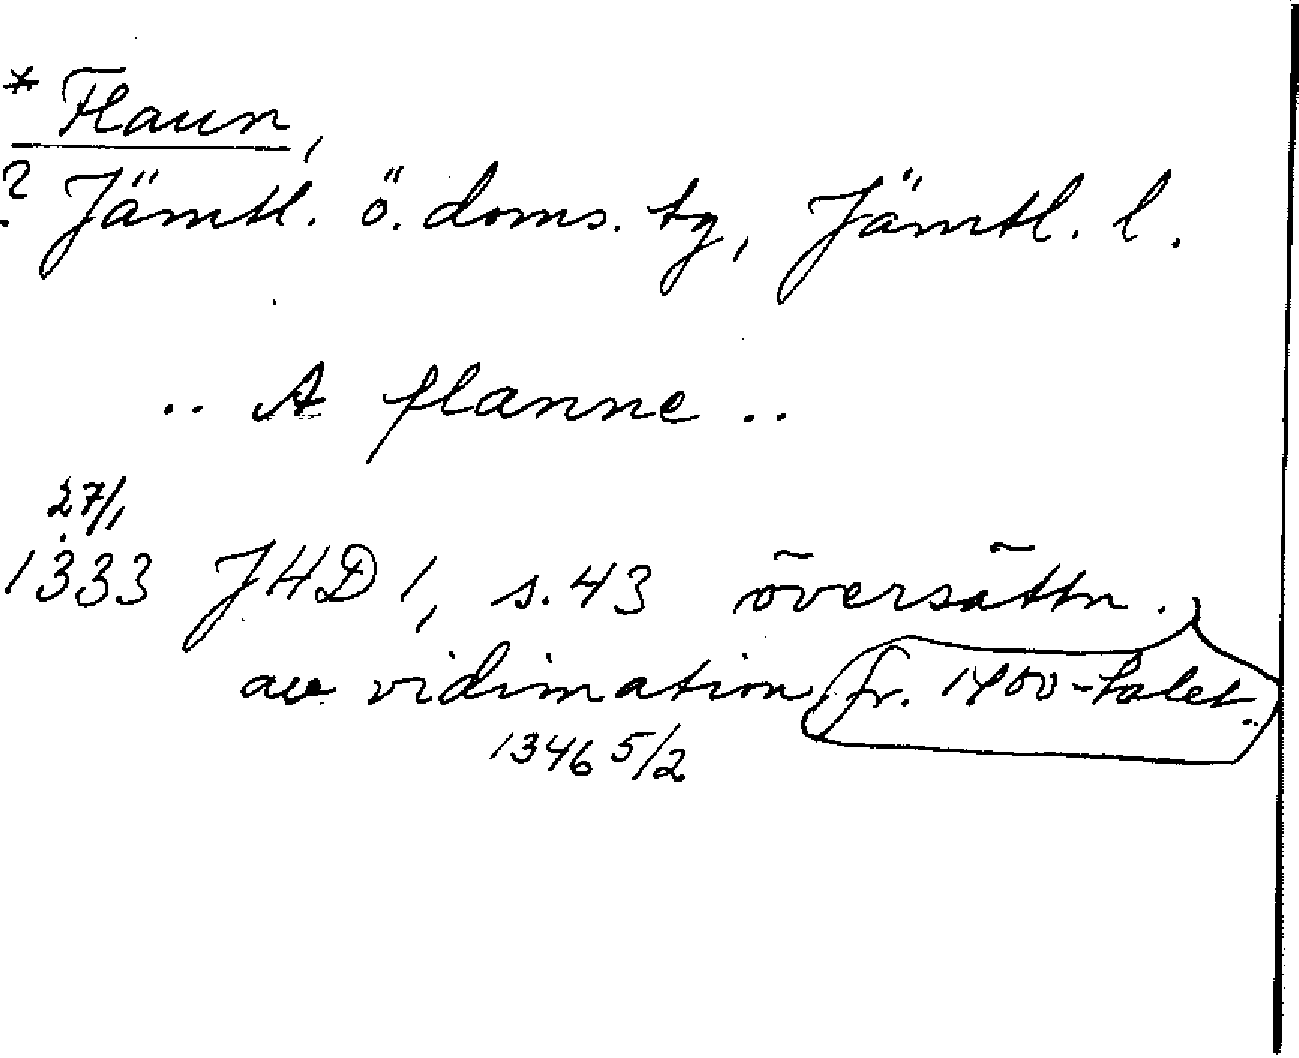 * Flaun,
? Jämtl. ö. doms. tg, Jämtl. l.
.. A flanne ..
27/1
1333 JHD 1, s. 43 översättn.
av vidimation fr. 1400-talet.
1346 5/2